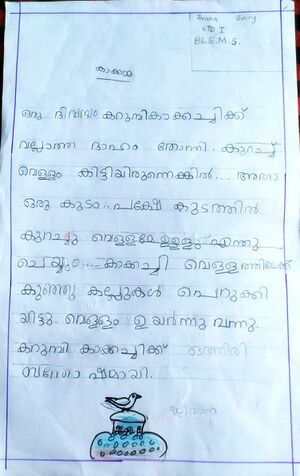 Jvana Jinoy
STD I
B.E.M.S.
കാക്കമ്മ
ഒരു ദിവസം കറുമ്പികാക്കച്ചിക്ക്
വല്ലാത്ത ദാഹം തോന്നി. കുറച്ച്
വെള്ളം കിട്ടിയിരുന്നെങ്കിൽ.... അതാ
ഒരു കുടം...പക്ഷേ കുടത്തിൽ
കുറച്ചു വെള്ളമേ ഉള്ളൂ എന്തു
ചെയ്യും.... കാക്കച്ചി വെള്ളത്തിലേക്ക്
കുഞ്ഞു കല്ലുകൾ പെറുക്കി
യിട്ടു. വെള്ളം ഉയർന്നു വന്നു.
കറുമ്പി കാക്കച്ചിക്ക് ഒത്തിരി
സന്തോഷമായി.
ജുവാന